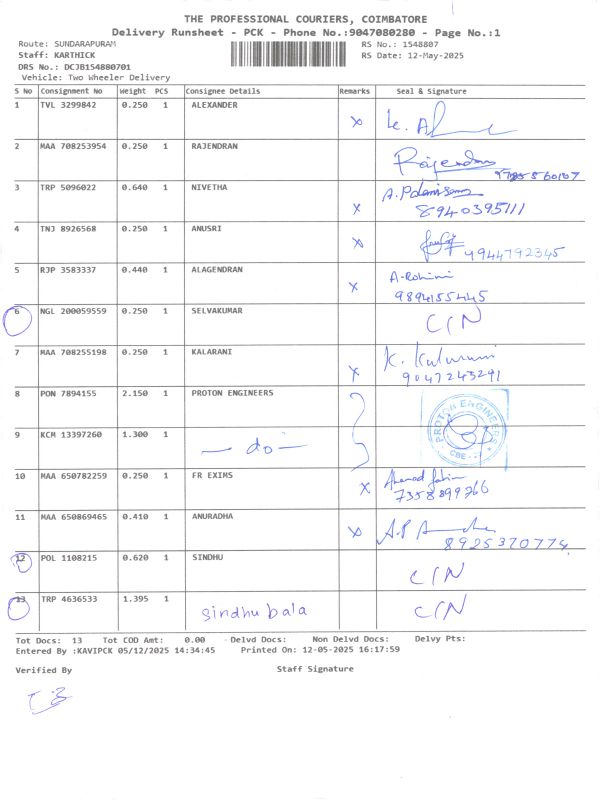 THE PROFESSIONAL COURIERS, COIMBATORE
Delivery Runsheet - PCK - Phone No.:9047080280 - Page No.:1
Route: SUNDARAPURAM RS No.: 1548807
Staff: KARTHICK RS Date: 12-May-2025
DRS No.: DCJB154880701
Vehicle: Two Wheeler Delivery
S No Consignment No Weight PCS Consignee Details Remarks Seal & Signature
1 TVL 3299842 0.250 1 ALEXANDER x
2 MAA 708253954 0.250 1 RAJENDRAN Rajendran
3 TRP 5096022 0.640 1 NIVETHA
x 8940395111
4 TNJ 8926568 0.250 1 ANUSRI x
9944792345
5 RJP 3583337 0.440 1 ALAGENDRAN x A-Rohini
9894155445
6 NGL 200059559 0.250 1 SELVAKUMAR C/N
7 MAA 708255198 0.250 1 KALARANI K. Kalarani
x 9047243291
8 PON 7894155 2.150 1 PROTON ENGINEERS PROTON ENGINEERS
9 KCM 13397260 1.300 1 - do - CBE -
10 MAA 650782259 0.250 1 FR EXIMS x
7358899266
11 MAA 650869465 0.410 1 ANURADHA x
8925370774
12 POL 1108215 0.620 1 SINDHU C/N
13 TRP 4636533 1.395 1 Sindhu bala C/N
Tot Docs: 13 Tot COD Amt: 0.00 Delvd Docs: Non Delvd Docs: Delvy Pts:
Entered By :KAVIPCK 05/12/2025 14:34:45 Printed On: 12-05-2025 16:17:59
Verified By Staff Signature